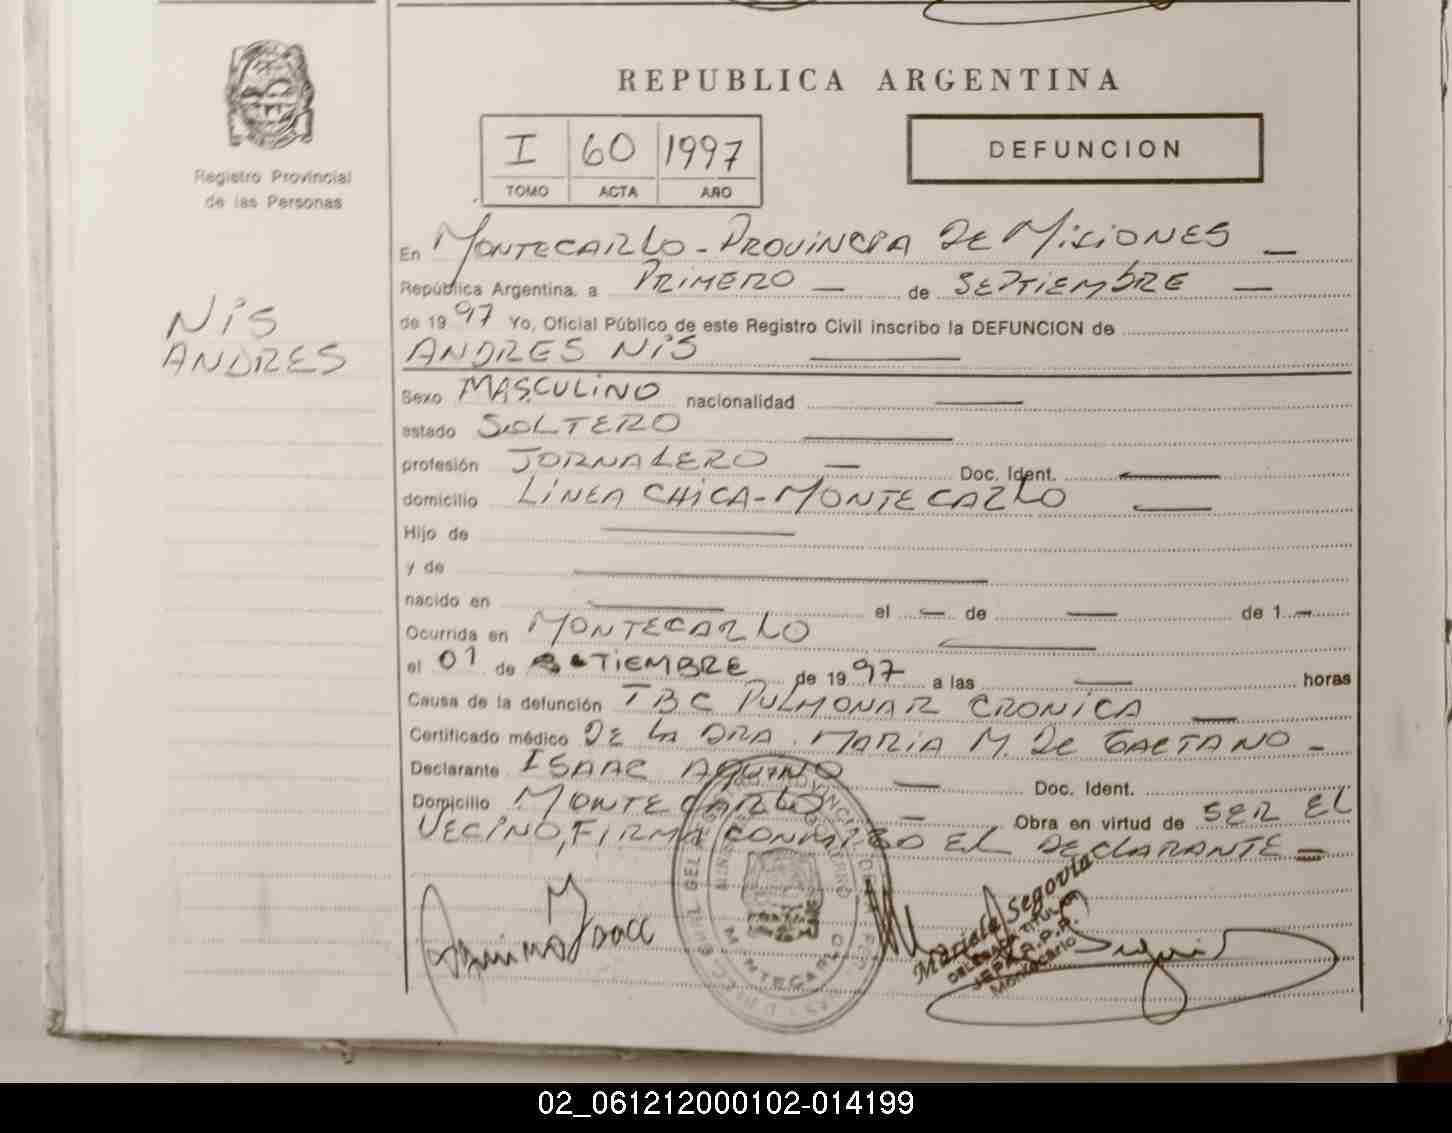 REPUBLICA ARGENTINA
Registro Provincial
de las Personas
I 60 1997
TOMO ACTA AÑO
DEFUNCION
NiS
ANDRES
En MONTECARLO - PROViNCiA DE MiSiONES
República Argentina. a PRiMERO de SEPTiEMBRE
de 1997 Yo, Oficial Público de este Registro Civil inscribo la DEFUNCION de
ANDRES NiS
Sexo MASCULiNO nacionalidad
estado SOLTERO
profesión JORNALERO Doc. Ident.
domicilio LiNEA CHiCA - MONTECARLO
Hijo de
y de
nacido en el de de 1
Ocurrida en MONTECARLO
el 01 de SETIEMBRE de 1997 a las horas
Causa de la defunción TBC PULMONAR CRONiCA
Certificado médico DE LA DRA. MARiA M. DE GAETANO
Declarante ISAAC AQUiNO Doc. Ident.
Domicilio MONTECARLO Obra en virtud de SER EL
VECiNO, FiRMA CONMiGO EL DECLARANTE
Aquino Isacc
MONTECARLO
Mariela Segovia
DELEGADA TITULAR
Montecarlo
02_061212000102-014199